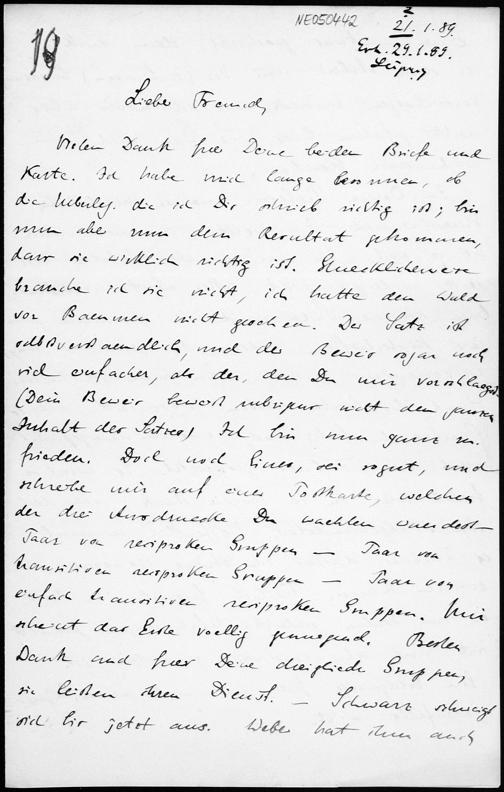 19
NE050442
21.1.89.
Erh. 29.1.89.
Leipzig
Lieber Freund,
Vielen Dank fuer Deine beiden Briefe und
Karte. Ich habe mich lange besonnen, ob
die Ueberleg. die ich Dir schrieb richtig ist; bin
nun aber nun dem Resultat gekommen,
dass sie wirklich richtig ist. Gluecklicherweise
brauche ich sie nicht, ich hatte den Wald
vor Baeumen nicht gesehen. Der Satz ist
selbstverstaendlich, und der Beweis sogar noch
viel einfacher, als der, den Du mir vorschlaegst.
(Dein Beweis beweist uebrigens nicht den ganzen
Inhalt des Satzes) Ich bin nun ganz zu
frieden. Doch noch Eines, sei so gut, und
schreibe mir auf einer Postkarte, welchen
der drei Ausdruecke Du waehlen wuerdest —
Paar von reciproken Gruppen — Paar von
transitiven reciproken Gruppen — Paar von
einfach transitiven reciproken Gruppen. Mir
scheint das Erste voellig genuegend. Besten
Dank auch fuer Deine dreiglied. Gruppen,
sie leisten ihren Dienst. — Schwarz schweigt
sich bis jetzt aus. Weber hat ihm auch